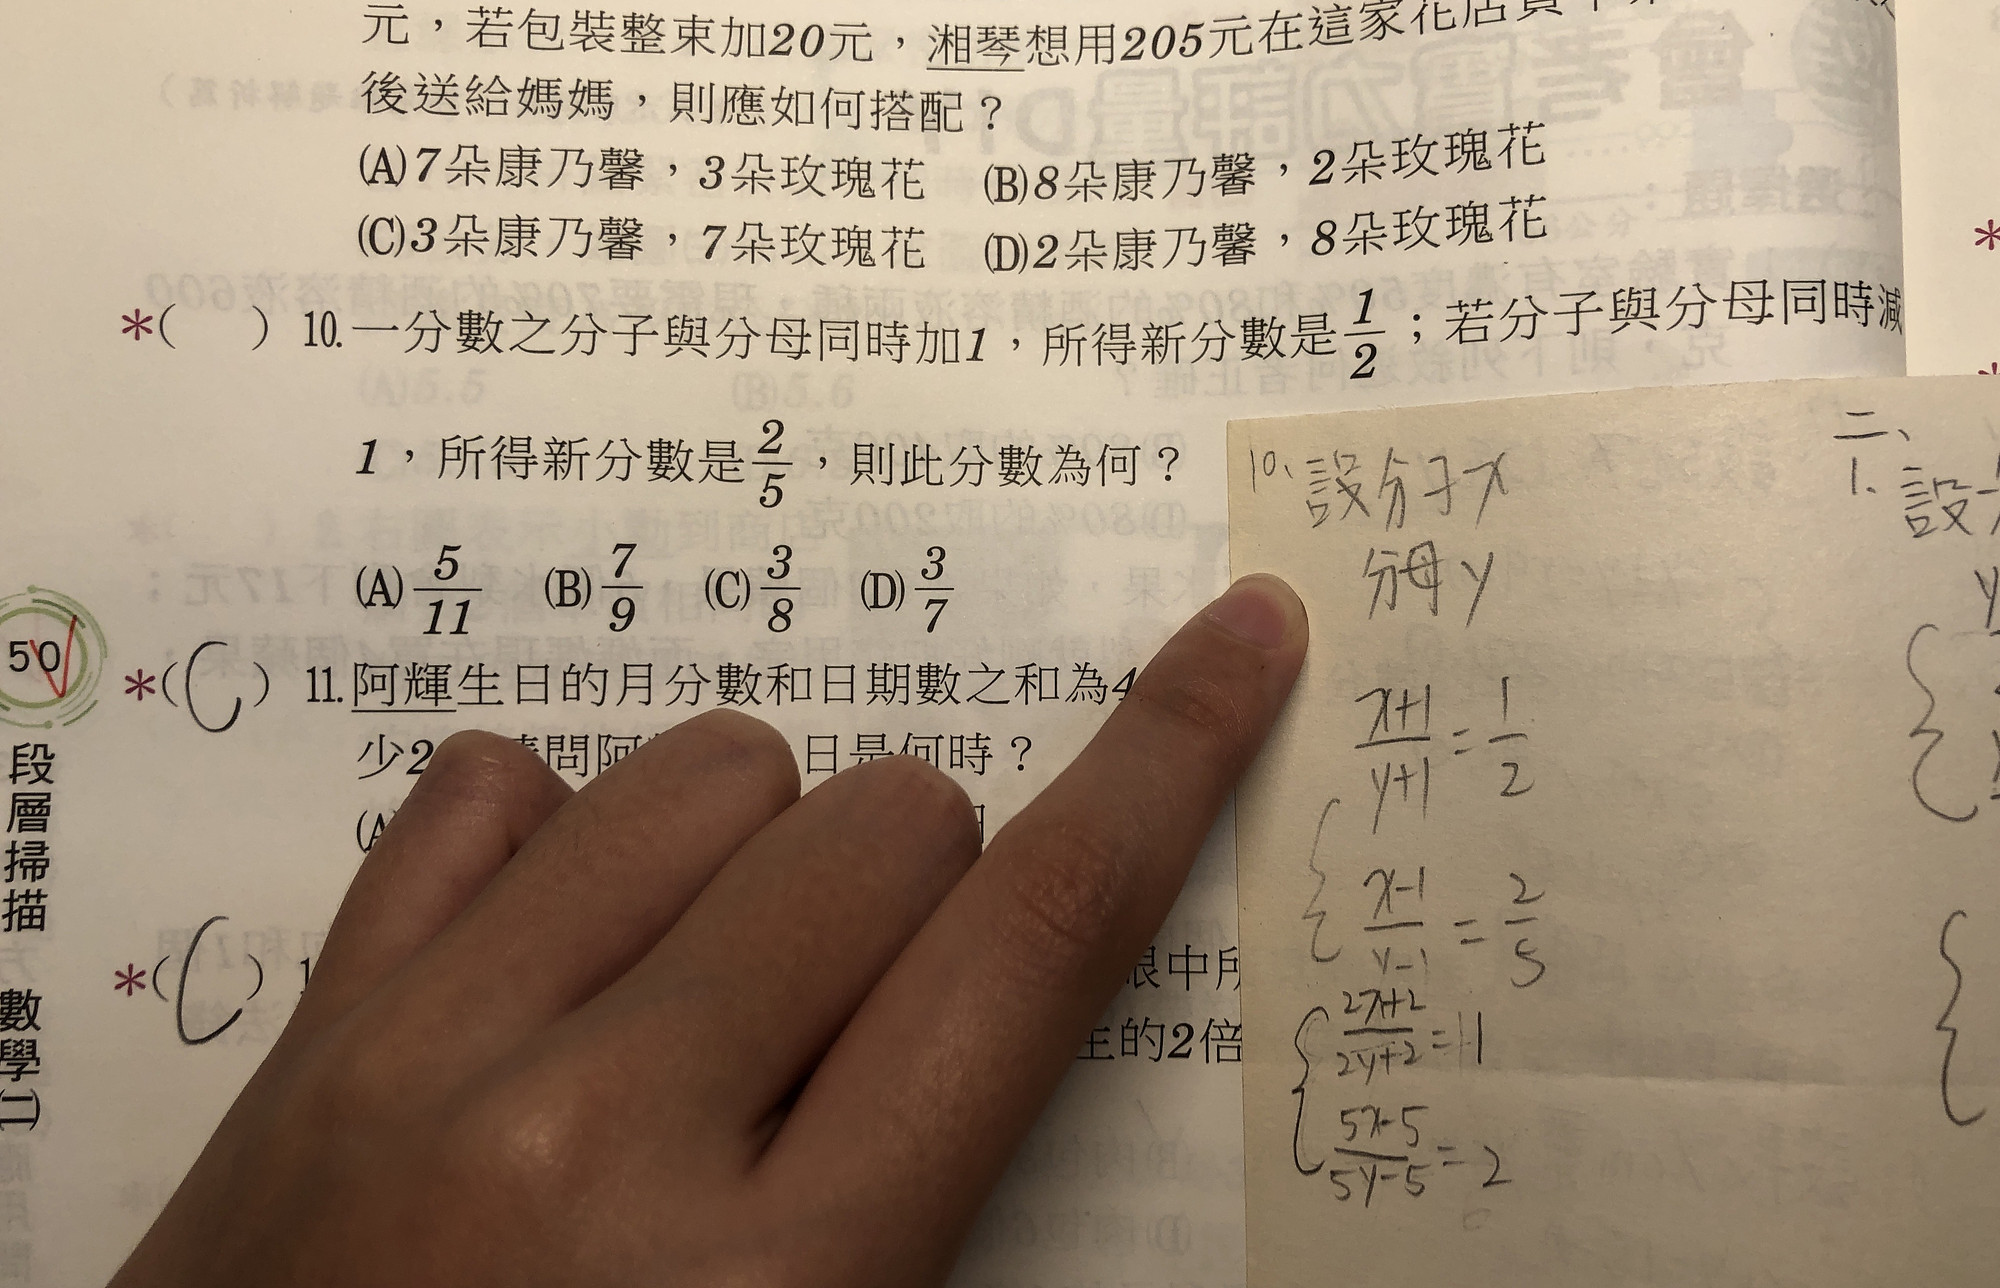 元，若包裝整束加20元，湘琴想用205元在這家花店買
後送給媽媽，則應如何搭配？
(A)7朵康乃馨，3朵玫瑰花 (B)8朵康乃馨，2朵玫瑰花
(C)3朵康乃馨，7朵玫瑰花 (D)2朵康乃馨，8朵玫瑰花
*( ) 10.一分數之分子與分母同時加1，所得新分數是1/2；若分子與分母同時減
1，所得新分數是2/5，則此分數為何？
(A)5/11 (B)7/9 (C)3/8 (D)3/7
*(C) 11.阿輝生日的月分數和日期數之和為4
少2 請問阿 日是何時？
(A)
*(C) 1 眼中所
生的2倍
50
段層掃描 數學(二)
10、設分子x
分母y
x+1/y+1=1/2
x-1/y-1=2/5
2x+2/2y+2=1
5x-5/5y-5=2
二、
1.設
y